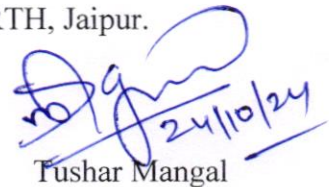 RTH, Jaipur.
24/10/24
Tushar Mangal